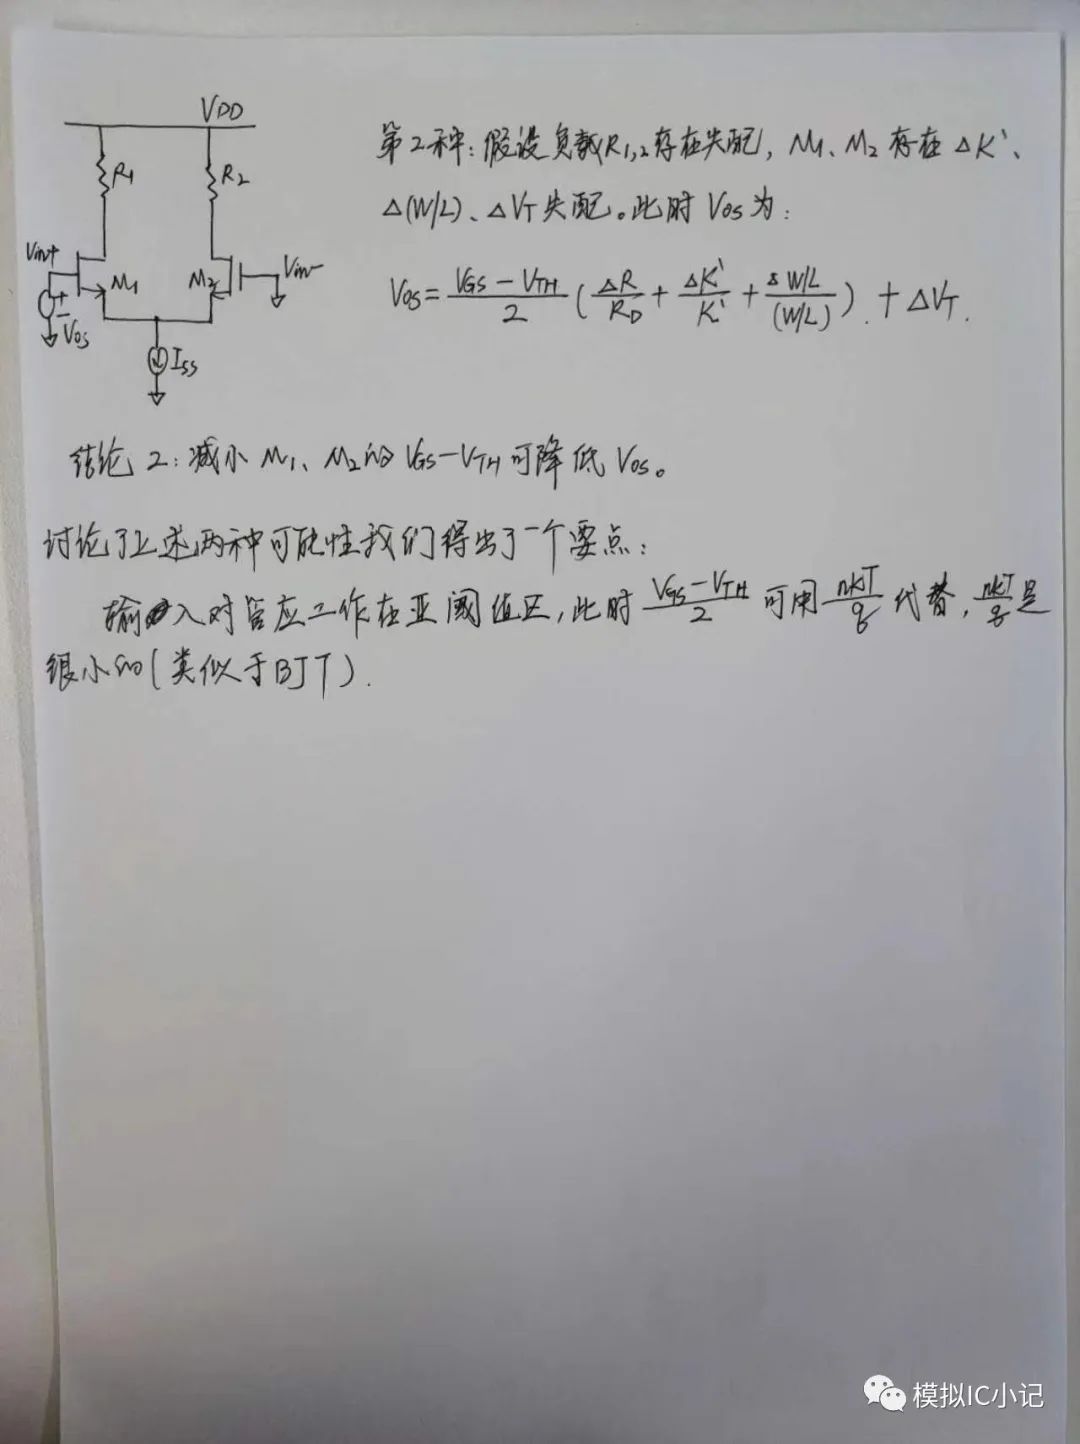 VDD
R1
R2
Vin+
M1
M2
Vin-
Vos
Iss
第2种:假设负载R1,2存在失配,M1、M2存在ΔK'、
Δ(W/L)、ΔVT失配。此时Vos为:
Vos = (VGS - VTH)/2 (ΔR/RD + ΔK'/K' + ΔW/L/(W/L)) + ΔVT.
结论2:减小M1、M2的VGS-VTH可降低Vos。
讨论了上述两种可能性我们得出了一个要点:
输入对管应工作在亚阈值区,此时(VGS-VTH)/2可用nkT/q代替,nkT/q是
很小的(类似于BJT).
模拟IC小记